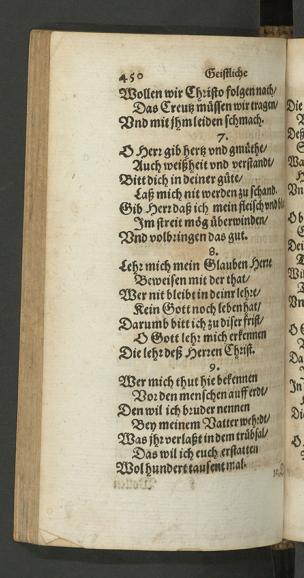 450 Geistliche
Wollen wir Christo folgen nach/
Das Creutz müssen wir tragen/
Vnd mit jhm leiden schmach.
7.
O Herr gib hertz vnd gmüthe/
Auch weißheit vnd verstandt/
Bitt dich in deiner güte/
Laß mich nit werden zu schand.
Gib Herr daß ich mein fleisch vnd
Im streit mög überwinden/
Vnd volbringen das gut.
8.
Lehr mich mein Glauben Herr
Beweisen mit der that/
Wer nit bleibt in deinr lehre/
Kein Gott noch leben hat/
Darumb bitt ich zu diser frist/
O Gott lehr mich erkennen
Die lehr deß Herren Christ.
9.
Wer mich thut hie bekennen
Vor den menschen auff erdt/
Den wil ich bruder nennen
Bey meinem Vatter wehrdt/
Was jhr verlaßt in dem trübsal/
Das wil ich euch erstatten
Wol hundert tausent mal.